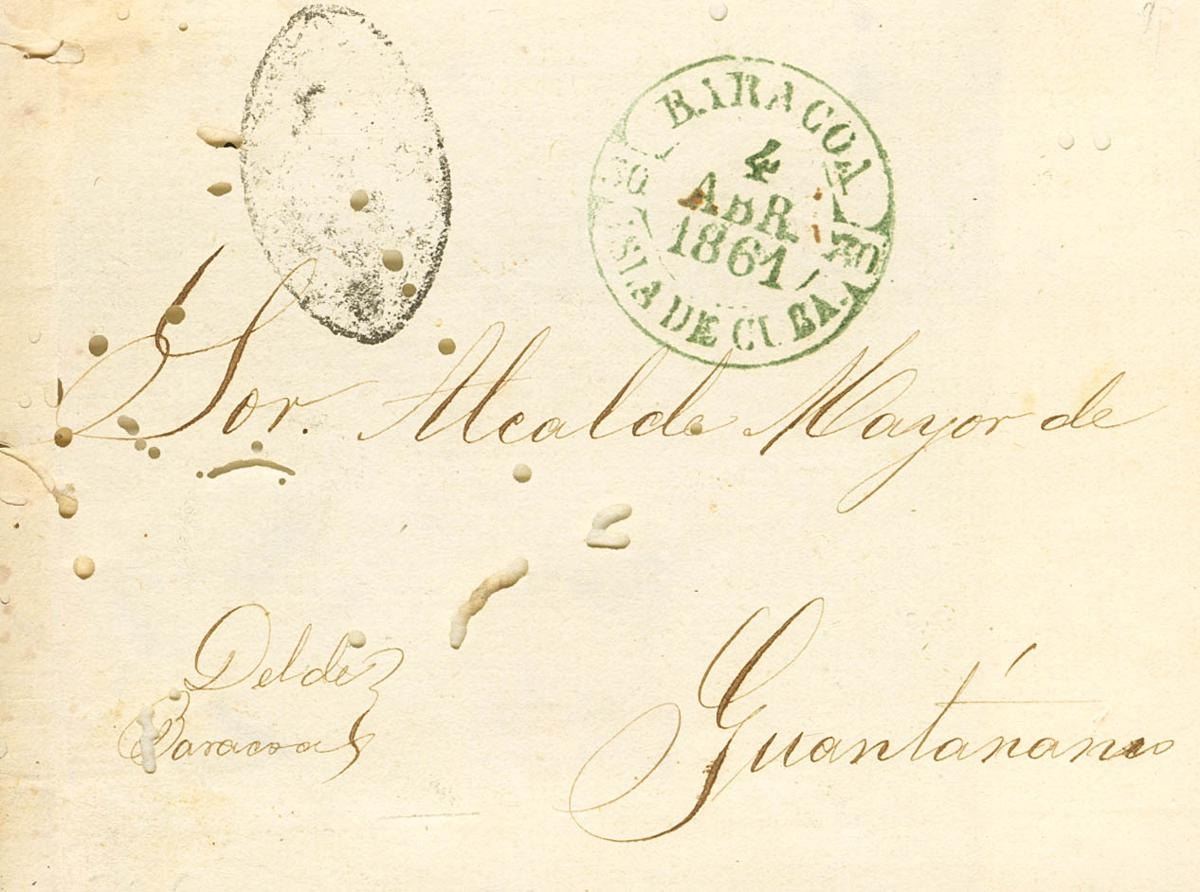 BARACOA
4
ABR.
1861
ISLA DE CUBA.
Sor. Alcalde Mayor de
Guantánamo
Del de
Baracoa